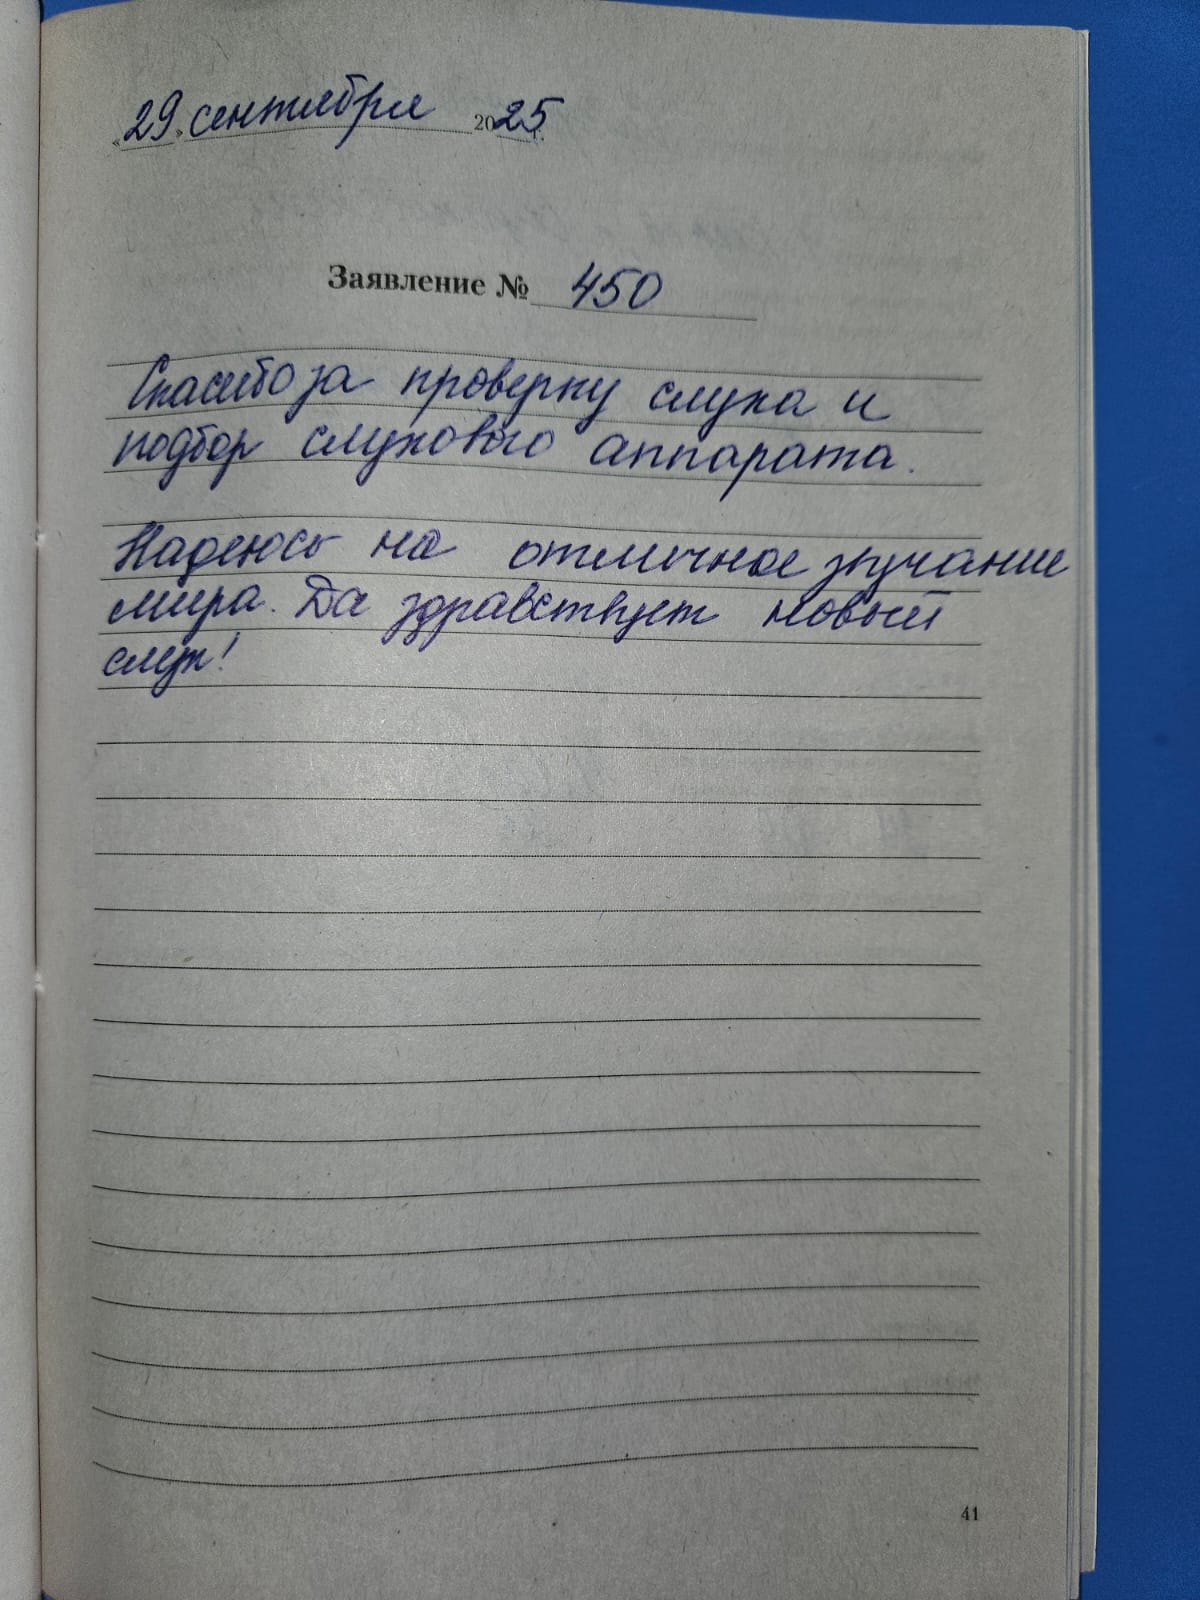 «29» сентября 2025 г.
Заявление № 450
Спасибо за проверку слуха и
подбор слухового аппарата.
Надеюсь на отличное звучание
мира. Да здравствует новый
слух!
41